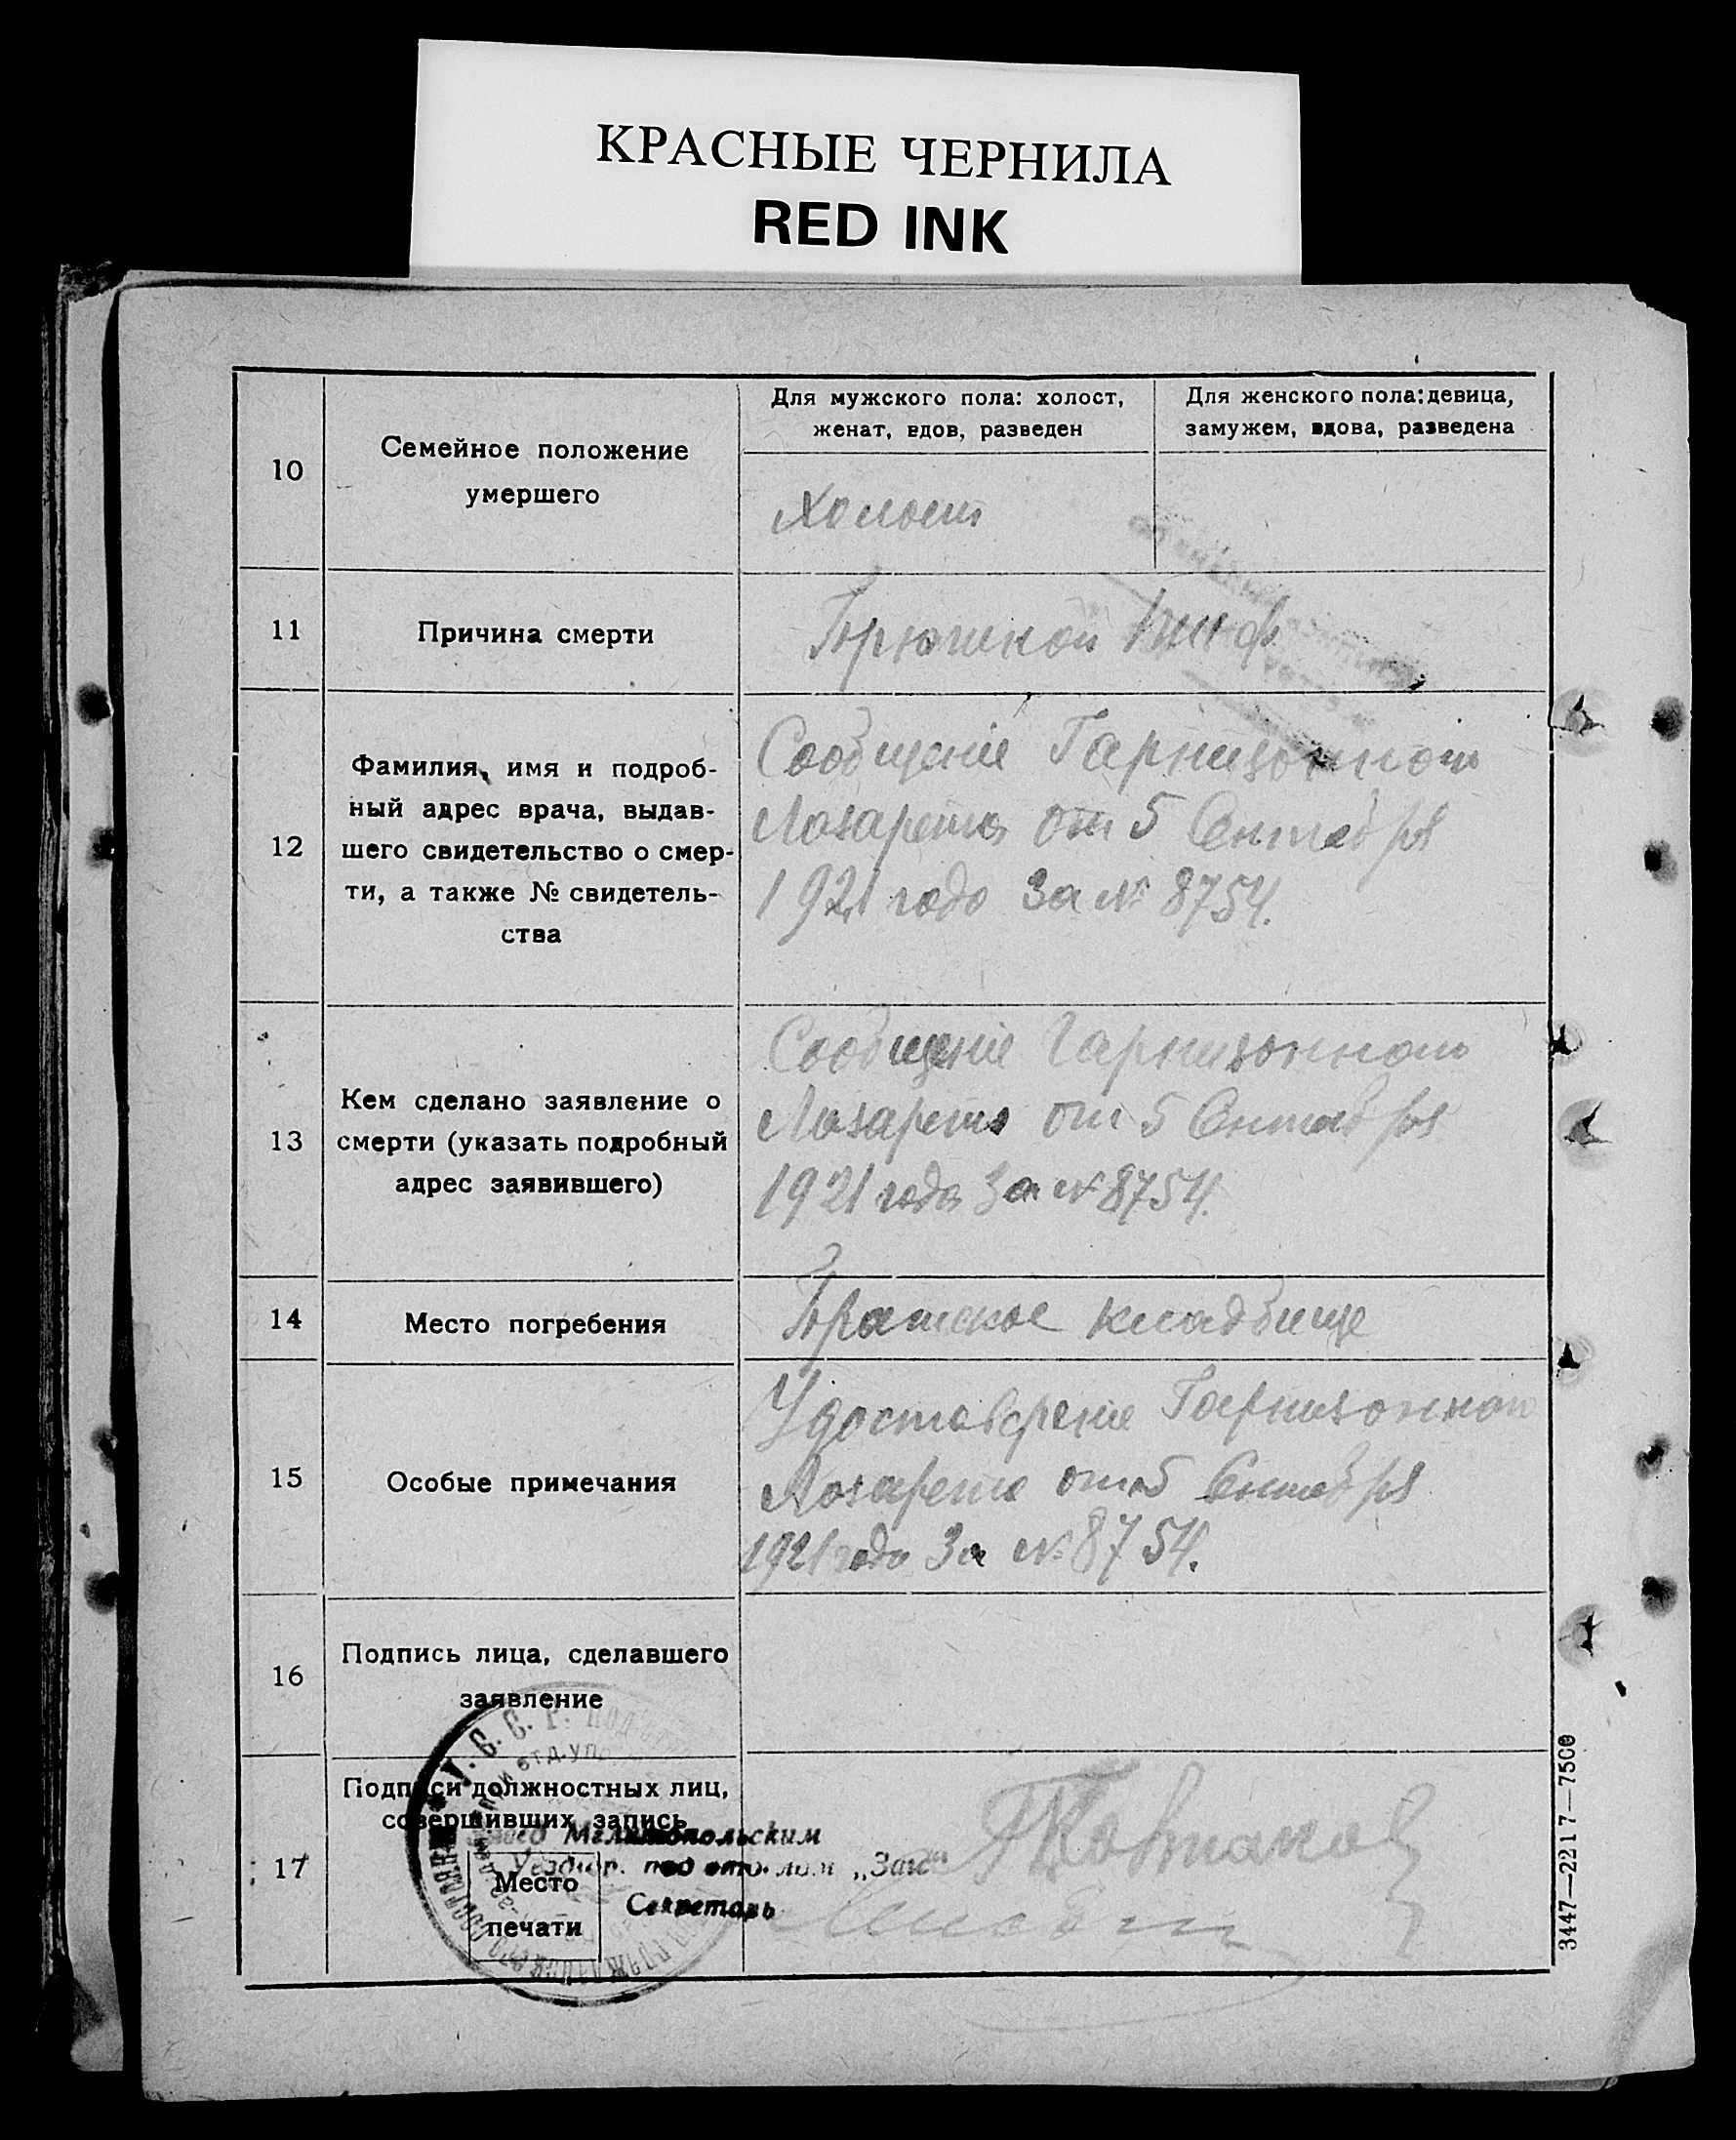 КРАСНЫЕ ЧЕРНИЛА
RED INK
10
Семейное положение
умершего
Для мужского пола: холост,
женат, вдов, разведен
Для женского пола: девица,
замужем, вдова, разведена
Холост
11
Причина смерти
Брюшной тиф
12
Фамилия, имя и подроб-
ный адрес врача, выдав-
шего свидетельство о смер-
ти, а также № свидетель-
ства
Сообщение Гарнизонного
Лазарета от 5 Сентября
1921 года За № 8754.
13
Кем сделано заявление о
смерти (указать подробный
адрес заявившего)
Сообщение Гарнизонного
Лазарета от 5 Сентября
1921 года За № 8754.
14
Место погребения
Братское кладбище
15
Особые примечания
Удостоверение Гарнизонного
Лазарета от 5 Сентября
1921 года За № 8754.
16
Подпись лица, сделавшего
заявление
17
Подписи должностных лиц,
совершивших запись
Место
печати
Мелитопольским
под отделом „Загс"
Секретарь
3447—2217—7500